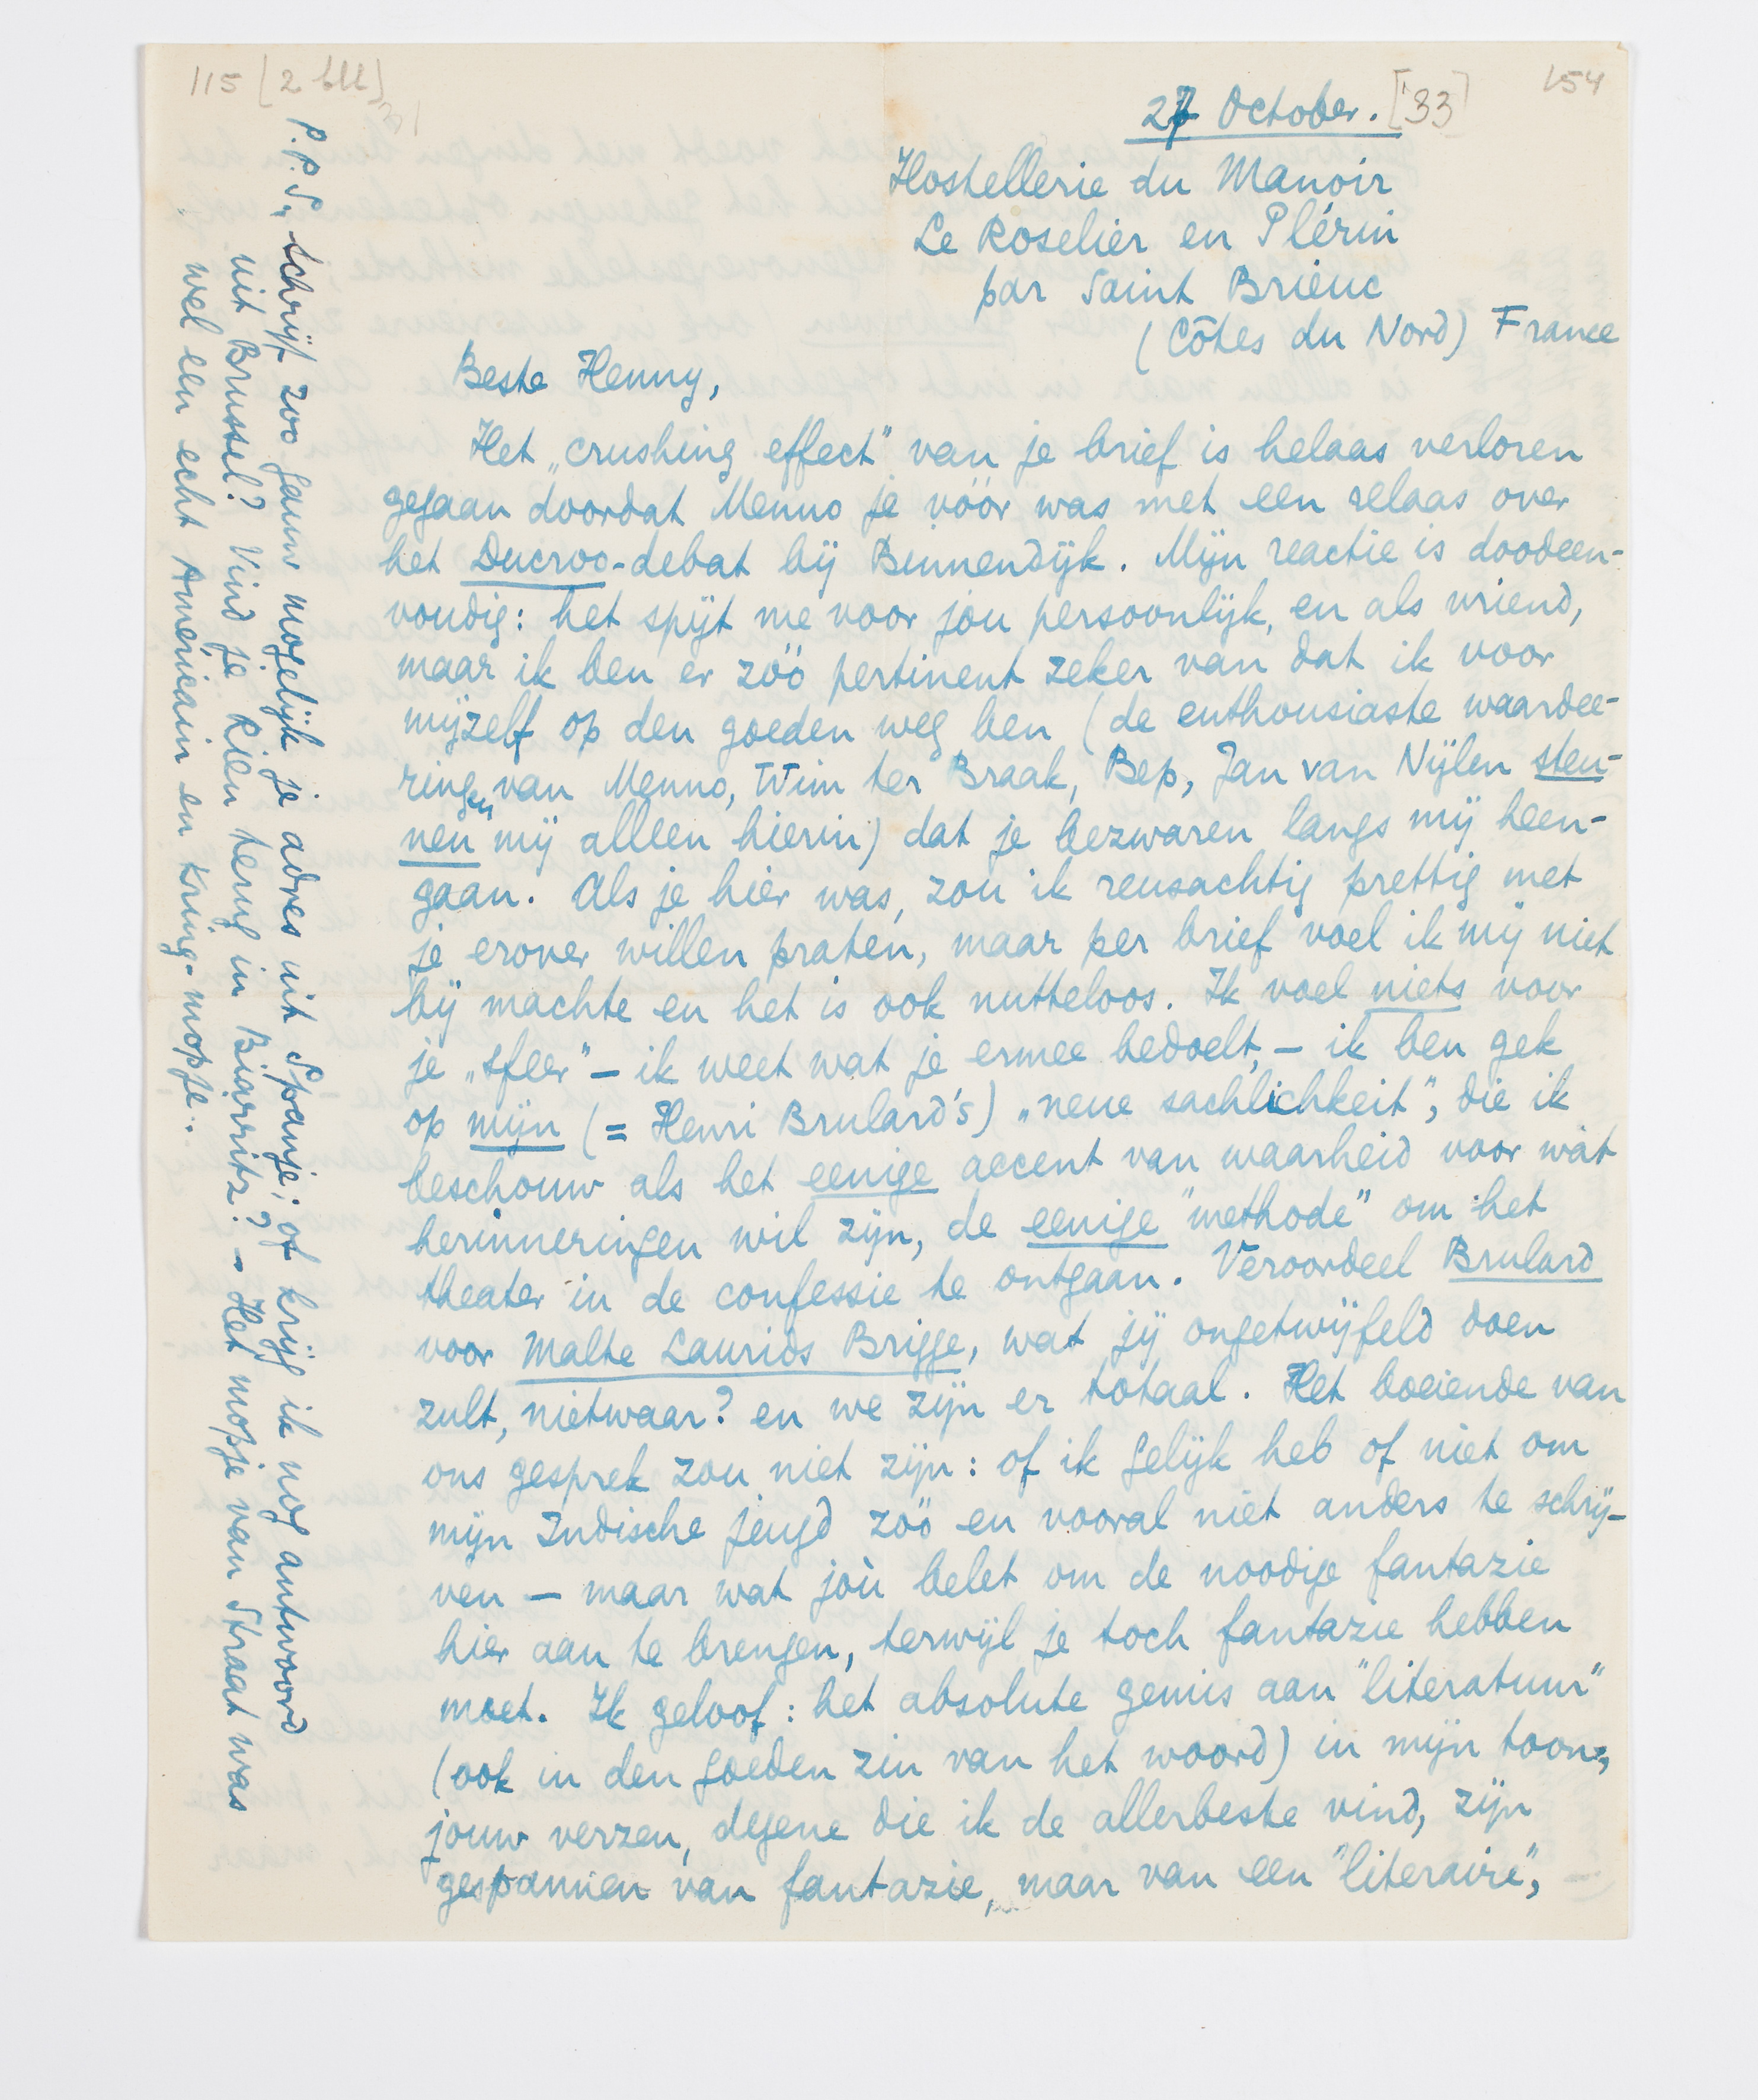 115 [2 bll]
154
27 October. ['33]
Hostellerie du Manoir
Le Roselier en Plérin
par Saint Brieuc
(Côtes du Nord) France
Beste Henny,
Het „crushing effect” van je brief is helaas verloren
gegaan doordat Menno je vóór was met een relaas over
het Ducroo-debat bij Binnendijk. Mijn reactie is doodeen-
voudig: het spijt me voor jou persoonlijk, en als vriend,
maar ik ben er zóó pertinent zeker van dat ik voor
mijzelf op den goeden weg ben (de enthousiaste waardee-
ringen van Menno, Wim ter Braak, Bep, Jan van Nijlen steu-
nen mij alleen hierin) dat je bezwaren langs mij heen-
gaan. Als je hier was, zou ik reusachtig prettig met
je erover willen praten, maar per brief voel ik mij niet
bij machte en het is ook nutteloos. Ik voel niets voor
je „sfeer” – ik weet wat je ermee bedoelt, – ik ben gek
op mijn (= Henri Brulard's) „neue sachlichkeit”, die ik
beschouw als het eenige accent van waarheid voor wàt
herinneringen wil zijn, de eenige "methode" om het
theater in de confessie te ontgaan. Veroordeel Brulard
voor Malte Laurids Brigge, wat jij ongetwijfeld doen
zult, nietwaar? en we zijn er totaal. Het boeiende van
ons gesprek zou niet zijn: of ik gelijk heb of niet om
mijn Indische jeugd zóó en vooral niet anders te schrij-
ven – maar wat joù belet om de noodige fantazie
hier aan te brengen, terwijl je toch fantazie hebben
moet. Ik geloof: het absolute gemis aan "literatuur"
(ook in den goeden zin van het woord) in mijn toon;
jouw verzen, degene die ik de allerbeste vind, zijn
gespannen van fantazie, maar van een "literaire",
P.P.S. Schrijf zoo gauw mogelijk je adres uit Spanje; of krijg ik nog antwoord
uit Brussel? Vind je Rien terug in Biarritz? – Het mopje van Straat was
wel een echt Américain en Kring-mopje..